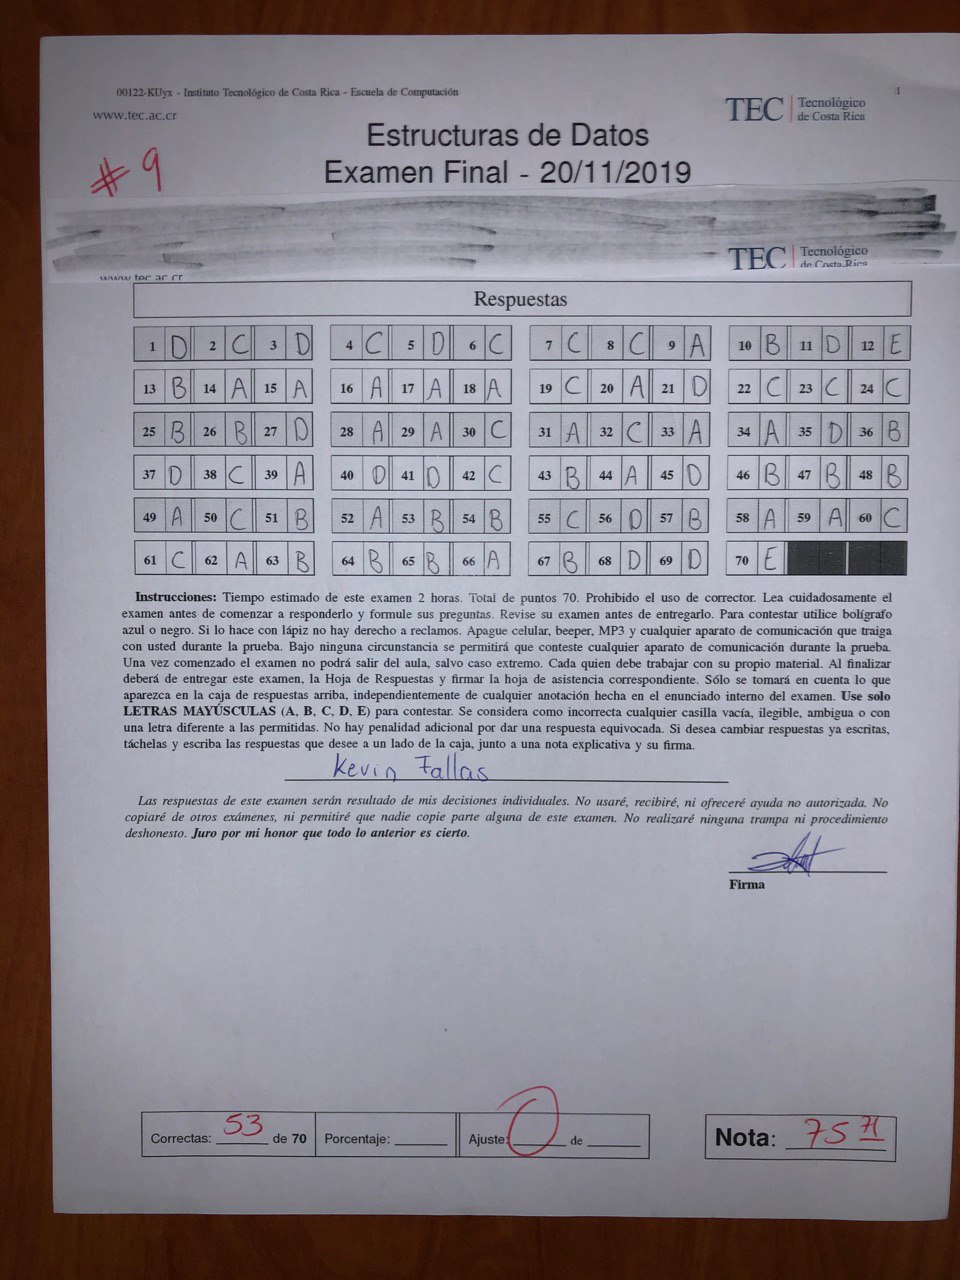 00122-KUyx - Instituto Tecnológico de Costa Rica - Escuela de Computación
1
www.tec.ac.cr
TEC Tecnológico de Costa Rica
Estructuras de Datos
Examen Final - 20/11/2019
# 9
TEC Tecnológico de Costa Rica
www.tec.ac.cr
Respuestas
1 D 2 C 3 D 4 C 5 D 6 C 7 C 8 C 9 A 10 B 11 D 12 E
13 B 14 A 15 A 16 A 17 A 18 A 19 C 20 A 21 D 22 C 23 C 24 C
25 B 26 B 27 D 28 A 29 A 30 C 31 A 32 C 33 A 34 A 35 D 36 B
37 D 38 C 39 A 40 D 41 D 42 C 43 B 44 A 45 D 46 B 47 B 48 B
49 A 50 C 51 B 52 A 53 B 54 B 55 C 56 D 57 B 58 A 59 A 60 C
61 C 62 A 63 B 64 B 65 B 66 A 67 B 68 D 69 D 70 E
Instrucciones: Tiempo estimado de este examen 2 horas. Total de puntos 70. Prohibido el uso de corrector. Lea cuidadosamente el
examen antes de comenzar a responderlo y formule sus preguntas. Revise su examen antes de entregarlo. Para contestar utilice bolígrafo
azul o negro. Si lo hace con lápiz no hay derecho a reclamos. Apague celular, beeper, MP3 y cualquier aparato de comunicación que traiga
con usted durante la prueba. Bajo ninguna circunstancia se permitirá que conteste cualquier aparato de comunicación durante la prueba.
Una vez comenzado el examen no podrá salir del aula, salvo caso extremo. Cada quien debe trabajar con su propio material. Al finalizar
deberá de entregar este examen, la Hoja de Respuestas y firmar la hoja de asistencia correspondiente. Sólo se tomará en cuenta lo que
aparezca en la caja de respuestas arriba, independientemente de cualquier anotación hecha en el enunciado interno del examen. Use solo
LETRAS MAYÚSCULAS (A, B, C, D, E) para contestar. Se considera como incorrecta cualquier casilla vacía, ilegible, ambigua o con
una letra diferente a las permitidas. No hay penalidad adicional por dar una respuesta equivocada. Si desea cambiar respuestas ya escritas,
táchelas y escriba las respuestas que desee a un lado de la caja, junto a una nota explicativa y su firma.
Kevin Fallas
Las respuestas de este examen serán resultado de mis decisiones individuales. No usaré, recibiré, ni ofreceré ayuda no autorizada. No
copiaré de otros exámenes, ni permitiré que nadie copie parte alguna de este examen. No realizaré ninguna trampa ni procedimiento
deshonesto. Juro por mi honor que todo lo anterior es cierto.
Firma
Correctas: 53 de 70 Porcentaje: Ajuste: 0 de Nota: 75 71